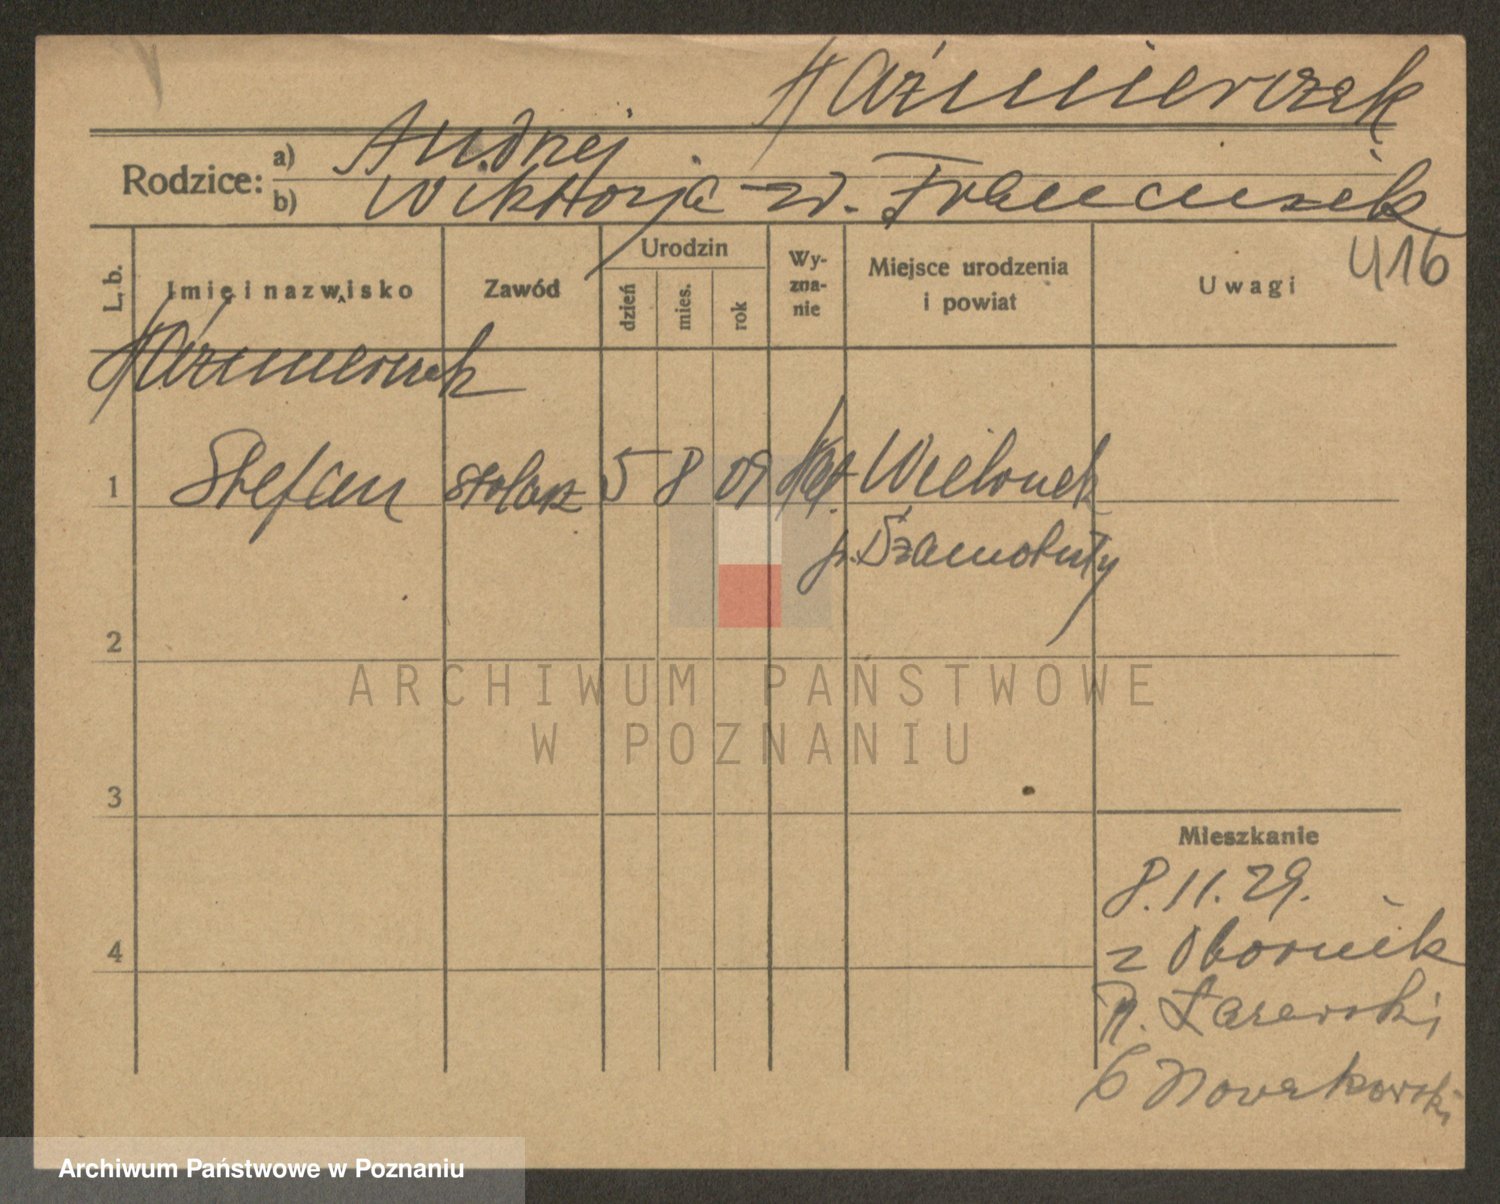 Kaźmierczak
Rodzice: a) Andrzej
b) Wiktorja z d. Franciszek
416
L. b.
Imię i nazwisko
Zawód
Urodzin
dzień
mies.
rok
Wy-
zna-
nie
Miejsce urodzenia
i powiat
Uwagi
Kaźmierczak
1 Stefan stolarz 5 8 09 kat. Wielonek
p. Szamotuły
2
3
4
Mieszkanie
8.11.29.
z Obornik
R. Łazarski
6 Nowakowski
ARCHIWUM PAŃSTWOWE
W POZNANIU
Archiwum Państwowe w Poznaniu